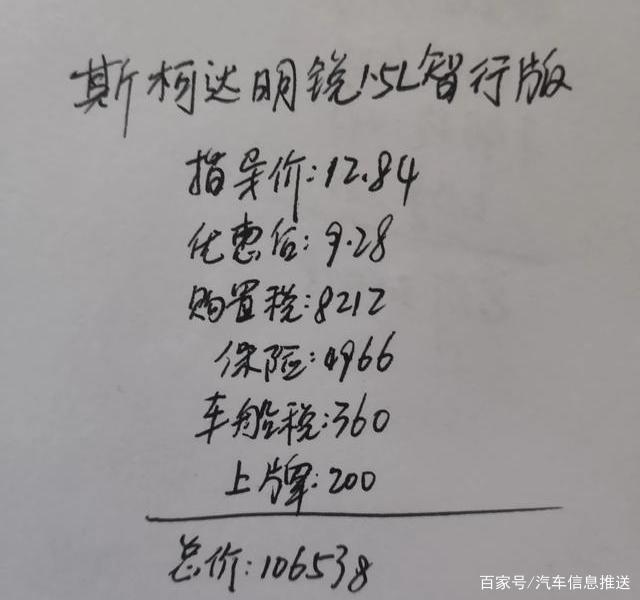 斯柯达明锐1.5L智行版
指导价:12.84
优惠后:9.28
购置税:8212
保险:4966
车船税:360
上牌:200
总价:106538
百家号/汽车信息推送